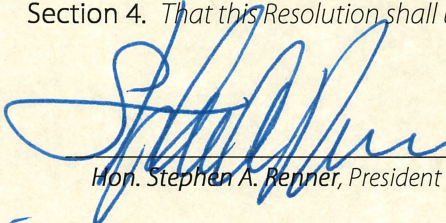 Section 4. That this Resolution shall
Hon. Stephen A. Renner, President